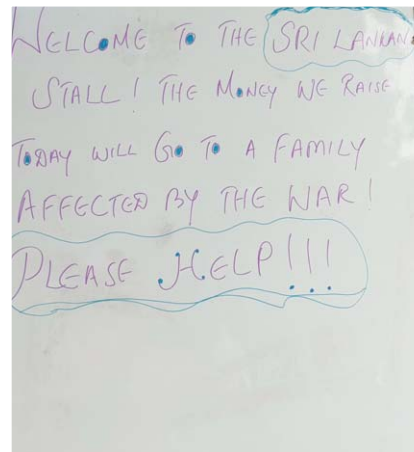 WELCOME TO THE SRI LANKAN
STALL! THE MONEY WE RAISE
TODAY WILL GO TO A FAMILY
AFFECTED BY THE WAR!
PLEASE HELP!!!